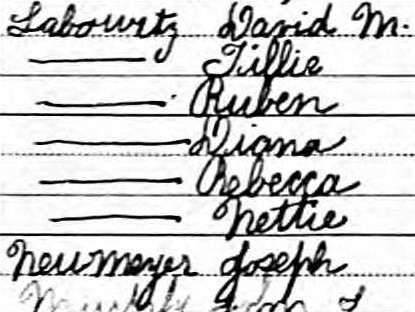 Labowitz David M.
—— Tillie
—— Ruben
—— Diana
—— Rebecca
—— Nettie
Neumeyer Joseph